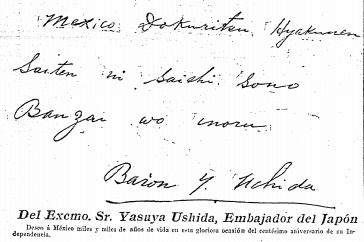 Mexico Dokuritsu Hyakunen
Saiten ni Saishi Sono
Banzai wo inoru
Baron Y. Uchida
Del Excmo. Sr. Yasuya Ushida, Embajador del Japón
Deseo á México miles y miles de años de vida en esta gloriosa ocasión del centésimo aniversario de su In-
dependencia.